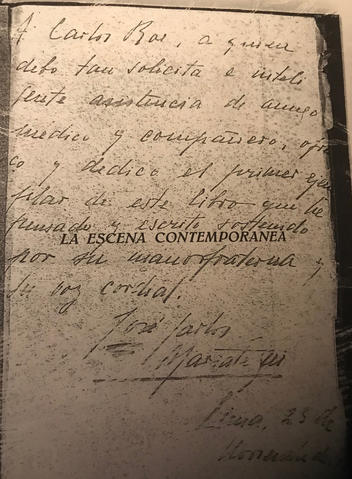 A Carlos Roe, a quien
debo tan solicita e inteli
gente asistencia de amigo
médico y compañero, ofrez
co y dedico el primer ejem
plar de este libro que he
pensado y escrito sostenido
LA ESCENA CONTEMPORANEA
por su mano fraterna y
su voz cordial.
José Carlos
Mariátegui
Lima, 23 de
Noviembre